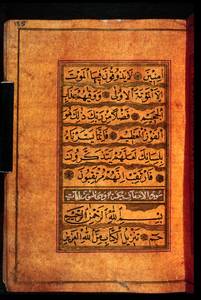 اٰمِنِينَ لَا يَذُوقُونَ فِيهَا الْمَوْتَ
اِلَّا الْمَوْتَةَ الْاُولٰى وَوَقٰيهُمْ عَذَابَ
الْجَحِيمِ فَضْلًا مِنْ رَبِّكَ ذٰلِكَ هُوَ
الْفَوْزُ الْعَظِيمُ فَاِنَّمَا يَسَّرْنَاهُ
بِلِسَانِكَ لَعَلَّهُمْ يَتَذَكَّرُونَ
فَارْتَقِبْ اِنَّهُمْ مُرْتَقِبُونَ
سورة
بِسْمِ اللّٰهِ الرَّحْمٰنِ الرَّحِيمِ
حٰم تَنْزِيلُ الْكِتَابِ مِنَ اللّٰهِ الْعَزِيزِ